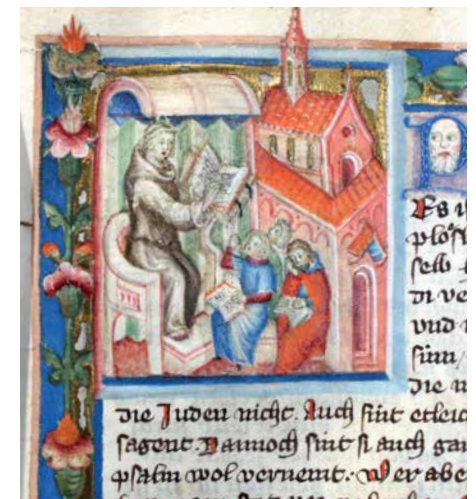 Es i
plos
selb
di ve
vnd
sinn /
die n
die Juden nicht. Auch sint etleic
sagent. Dannoch sint si auch gan
psalm wol vernemt. Wer abe